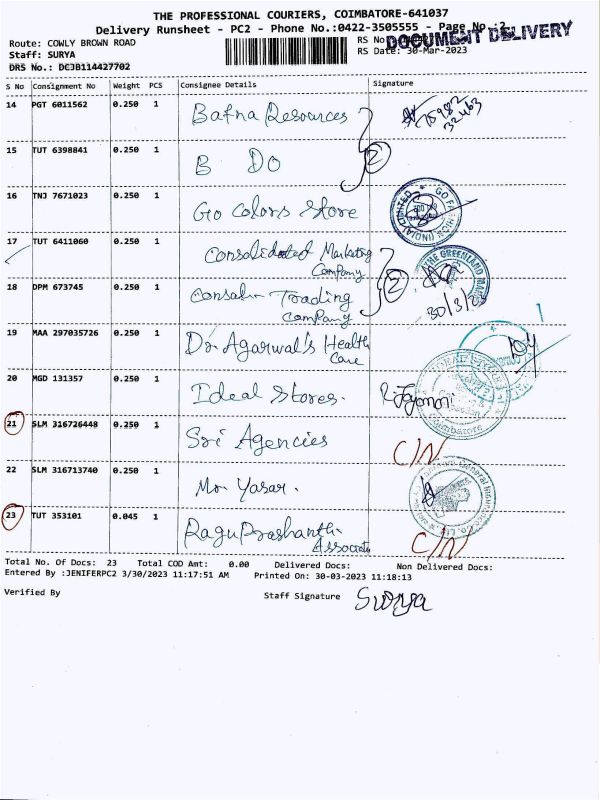 THE PROFESSIONAL COURIERS, COIMBATORE-641037
Delivery Runsheet - PC2 - Phone No.:0422-3505555 - Page No.:2
DOCUMENT DELIVERY
Route: COWLY BROWN ROAD
RS No
Staff: SURYA
RS Date: 30-Mar-2023
DRS No.: DCJB114427702
S No Consignment No Weight PCS Consignee Details Signature
14 PGT 6011562 0.250 1 Bafna Resources 75982
32463
15 TUT 6398841 0.250 1 B DO 2
16 TNJ 7671023 0.250 1 Go Colors Store
GO FASHION (INDIA) LIMITED
17 TUT 6411060 0.250 1 Consolidated Marketing
Company
THE GREENLAND
18 DPM 673745 0.250 1 Trading 2
Company
30/3/2
19 MAA 297035726 0.250 1 Dr. Agarwal's Health
Care
20 MGD 131357 0.250 1 Ideal Stores.
Coimbatore
21 SLM 316726448 0.250 1 Sri Agencies C/N
22 SLM 316713740 0.250 1 Mr. Yasar.
23 TUT 353101 0.045 1 RaguPrashanth
Associats C/N
Total No. Of Docs: 23 Total COD Amt: 0.00 Delivered Docs: Non Delivered Docs:
Entered By :JENIFERPC2 3/30/2023 11:17:51 AM Printed On: 30-03-2023 11:18:13
Verified By Staff Signature Surya